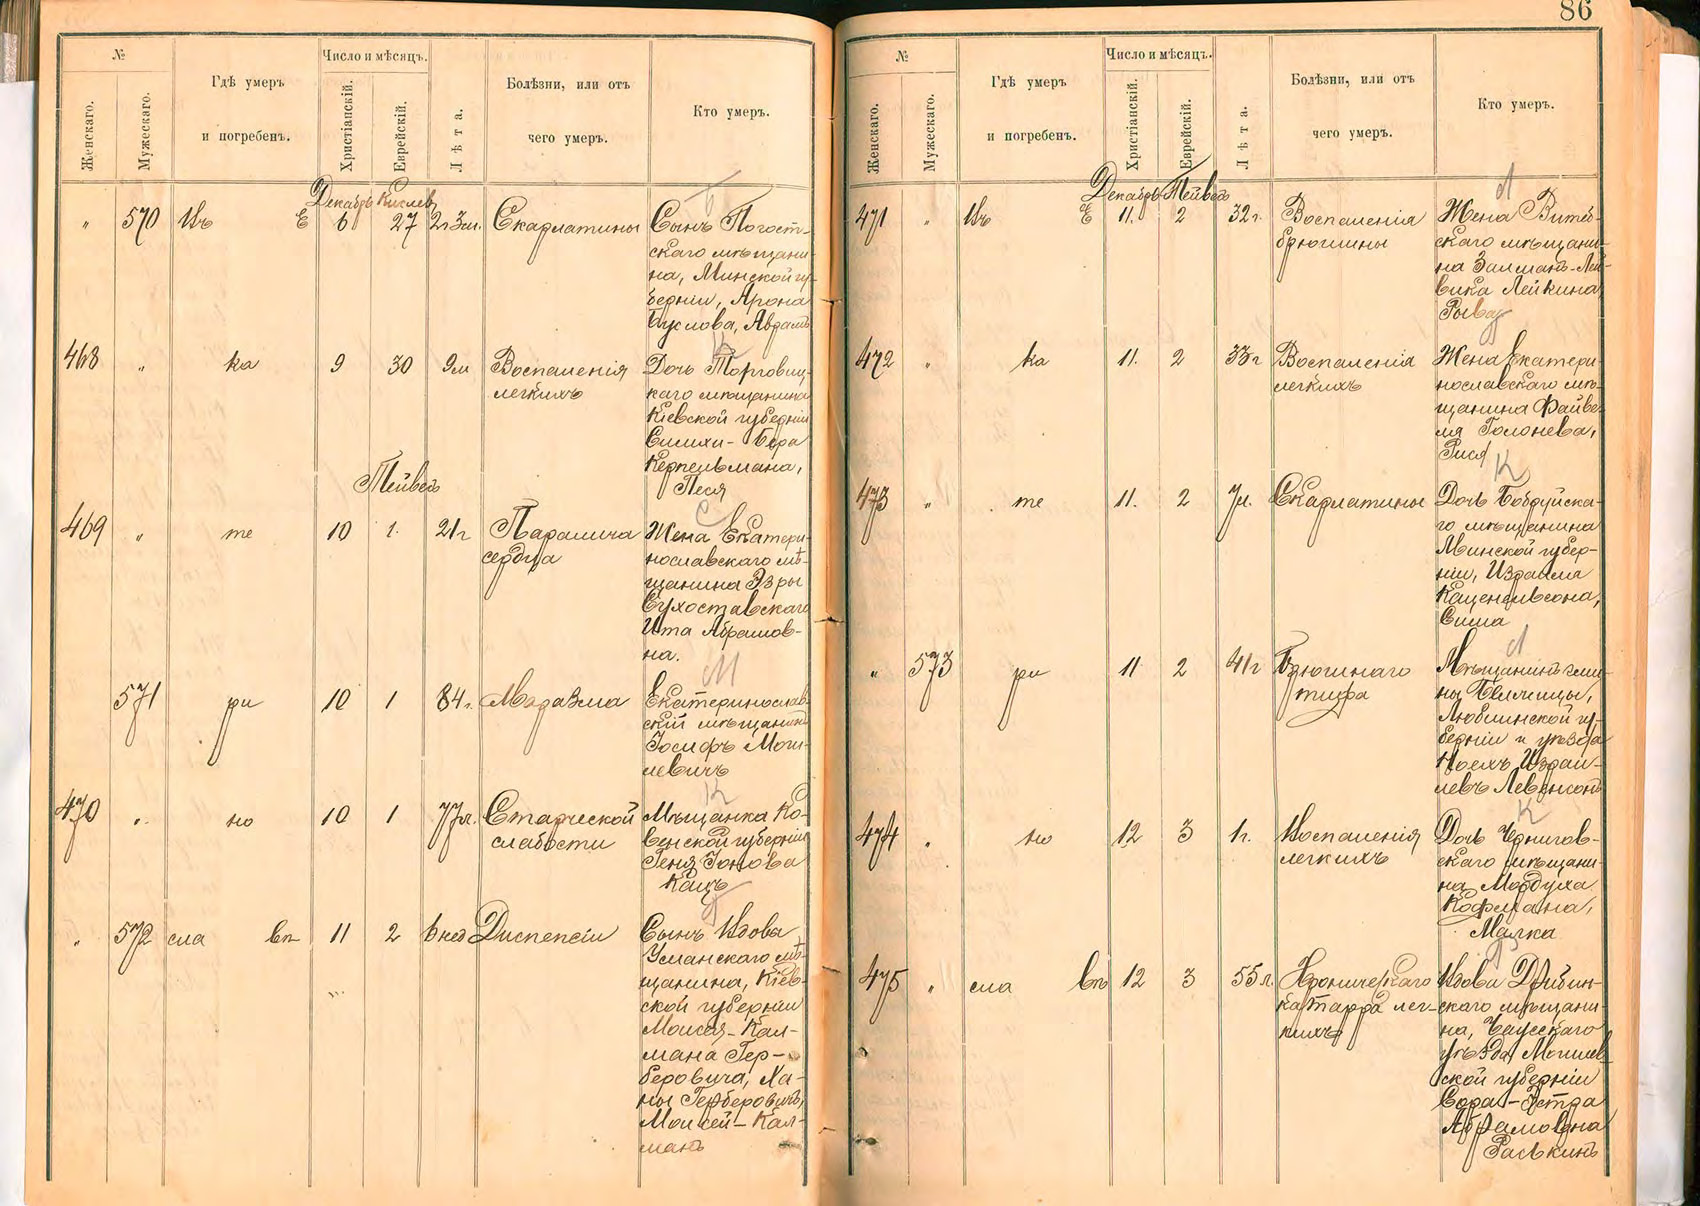 86
№
Женскаго.
Мужескаго.
Гдѣ умеръ
и погребенъ.
Число и мѣсяцъ.
Христіанскій.
Еврейскій.
Лѣта.
Болѣзни, или отъ
чего умеръ.
Кто умеръ.
Декабрь Кислевъ
" 570 Въ Е 6 27 2г 3м. Скарлатины
Сынъ Погост-
скаго мѣщани-
на, Минской гу-
берніи, Арона
Буслова, Аврамъ
468 " ка 9 30 9м Воспаленія
легкихъ
Дочь Торговиц-
каго мѣщанина
Кіевской губерніи
Симхи-Бера
Керпельмана,
Песя
Тейвесъ
469 " те 10 1. 21г Паралича
сердца
Жена Екатери-
нославскаго мѣ-
щанина Эзры
Сухоставскаго
Ита Абрамов-
на.
571 ри 10 1 84г. Маразма
Екатеринослав-
скій мѣщанинъ
Іосифъ Моги-
левичъ
470 " но 10 1 77л. Старческой
слабости
Мѣщанка Ко-
венской губерніи
Геня Іонова
Кацъ
" 572 сла вѣ 11 2 6 нед Диспепсіи
Сынъ Вдова
Уманскаго мѣ-
щанина, Кіев-
ской губерніи
Моисея-Кал-
мана Гер-
беровича, Ха-
ны Герберовичъ,
Моисей-Кал-
манъ
№
Женскаго.
Мужескаго.
Гдѣ умеръ
и погребенъ.
Число и мѣсяцъ.
Христіанскій.
Еврейскій.
Лѣта.
Болѣзни, или отъ
чего умеръ.
Кто умеръ.
Декабрь Тейвесъ
471 " Въ Е 11. 2 32г. Воспаленія
брюшины
Жена Витеб-
скаго мѣщани-
на Залманъ-Лей-
вика Лейкина,
Рыва
472 " ка 11. 2 33г Воспаленія
легкихъ
Жена Екатери-
нославскаго мѣ-
щанина Файве-
ля Голонева,
Рися
473 " те 11. 2 7л. Скарлатины
Дочь Бобруйска-
го мѣщанина
Минской губер-
ніи, Израиля
Каценельсона,
Сима
" 573 ри 11 2 41г Брюшнаго
тифа
Мѣщанинъ гми-
ны Белчицы,
Люблинской гу-
берніи и уѣзда
Ноехъ Израи-
левъ Левенсонъ
474 " но 12 3 1г. Воспаленія
легкихъ
Дочь Чернигов-
скаго мѣщани-
на Мордуха
Кофмана,
Малка
475 " сла вѣ 12 3 55л. Хроническаго
катарра лег-
кихъ
Вдова Дрибин-
скаго мѣщани-
на, Чаусскаго
уѣзда, Могилев-
ской губерніи
Сора-Эстра
Абрамовна
Раскинъ